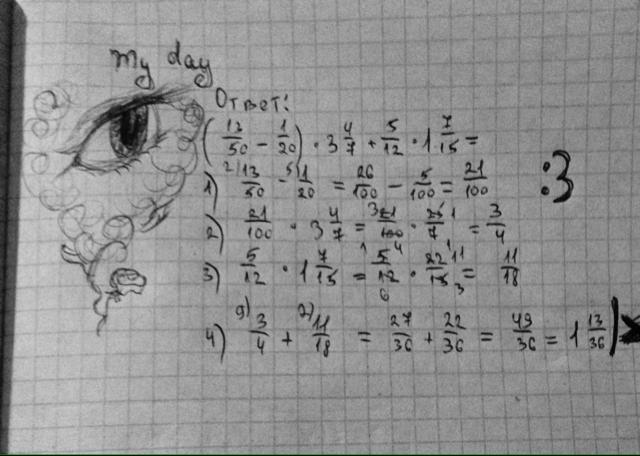 My day
Ответ:
(13/50 - 1/20) · 3 4/7 + 5/12 · 1 7/15 =
1) 2) 13/50 - 5) 1/20 = 26/100 - 5/100 = 21/100
:3
2) 21/100 · 3 4/7 = 3 21/100 · 25 1/7 = 3/4
3) 5/12 · 1 7/15 = 1 5 4/12 6 · 22 1 11/15 3 = 11/18
4) 9) 3/4 + 2) 11/18 = 27/36 + 22/36 = 49/36 = 1 13/36